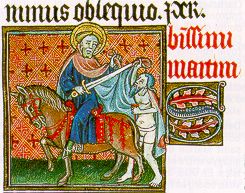 minus obsequio. per.
bissimi
martini